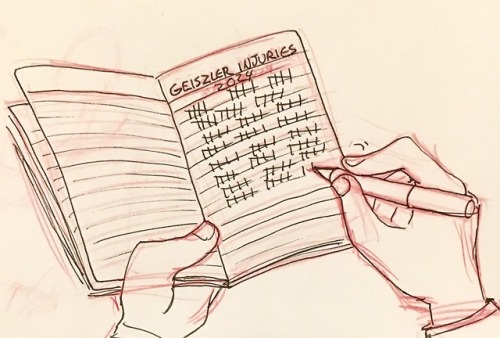 GEISZLER INJURIES
2024